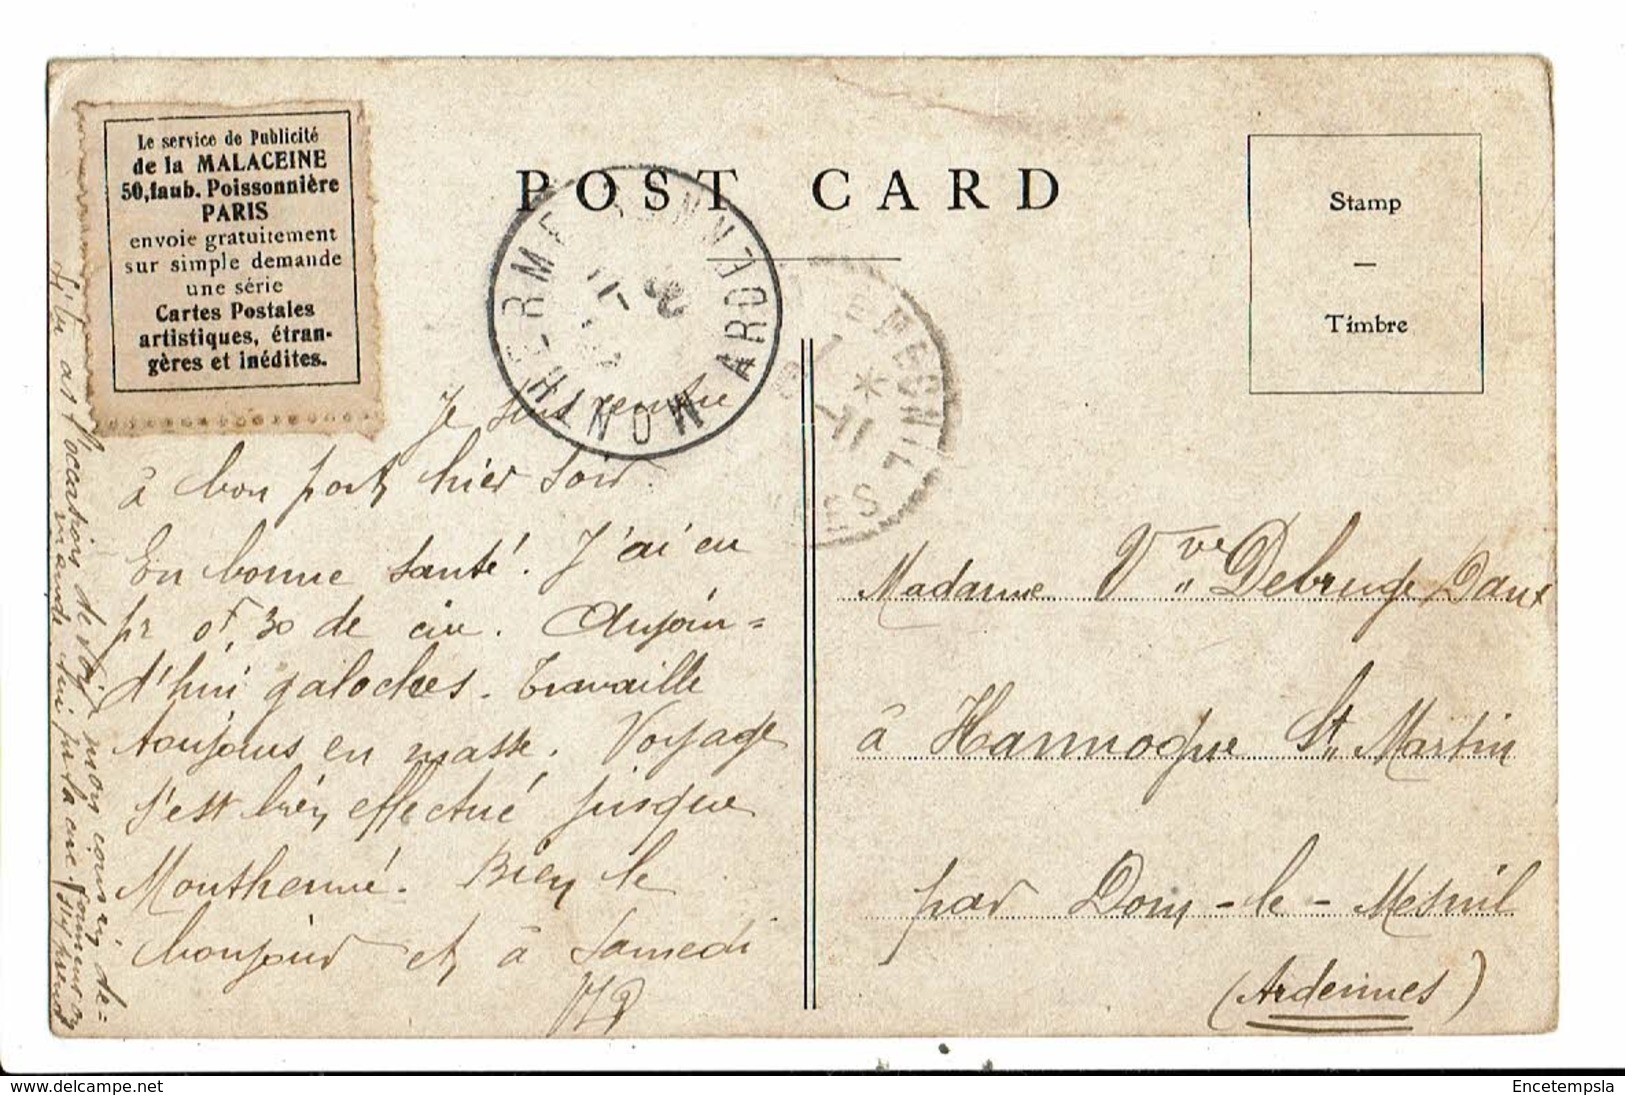 Le service de Publicité
de la MALACEINE
50, faub. Poissonnière
PARIS
envoie gratuitement
sur simple demande
une série
Cartes Postales
artistiques, étran-
gères et inédites.
POST CARD
Stamp
—
Timbre
MONTHERMÉ ARDENNES
Je suis rentré
à bon port, hier soir.
En bonne santé. J'ai eu
pr 0F,30 de cire. Aujour=
d'hui galoches. Travaille
toujours en masse. Voyage
s'est bien effectué jusque
Monthermé. Bien le
bonjour et, à Samedi
Si tu as l'occasion de voir mon cousin de=
mande lui pr la cire.
Madame Vve Debruge Daux
à Hannogne St Martin
par Dom-le-Mesnil
(Ardennes)
Encetempsla